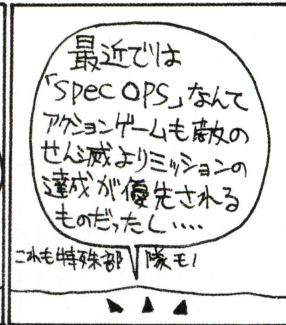 最近では
「SPEC OPS」なんて
アクションゲームも敵の
せん滅よりミッションの
達成が優先される
ものだったし‥‥
これも特殊部隊モノ